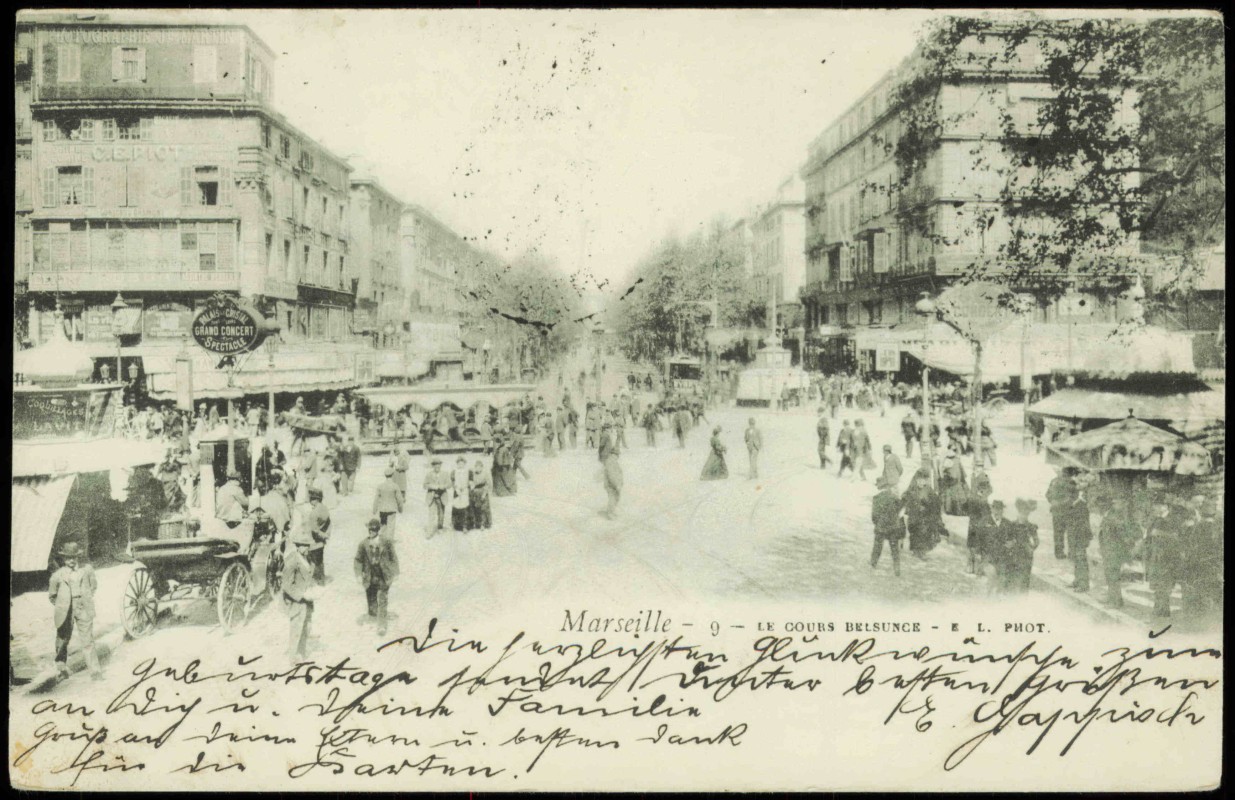 C.E. PIOT
PALAIS DE CRISTAL
GRAND CONCERT
SPECTACLE
LAVIT
Marseille - 9 - LE COURS BELSUNCE - E L. PHOT.
Die herzlichsten Glückwünsche zum
Geburtstage sendet unter besten Grüßen
an Dich u. Deine Familie
Gruß an deine Eltern u. besten Dank
für die Karten.